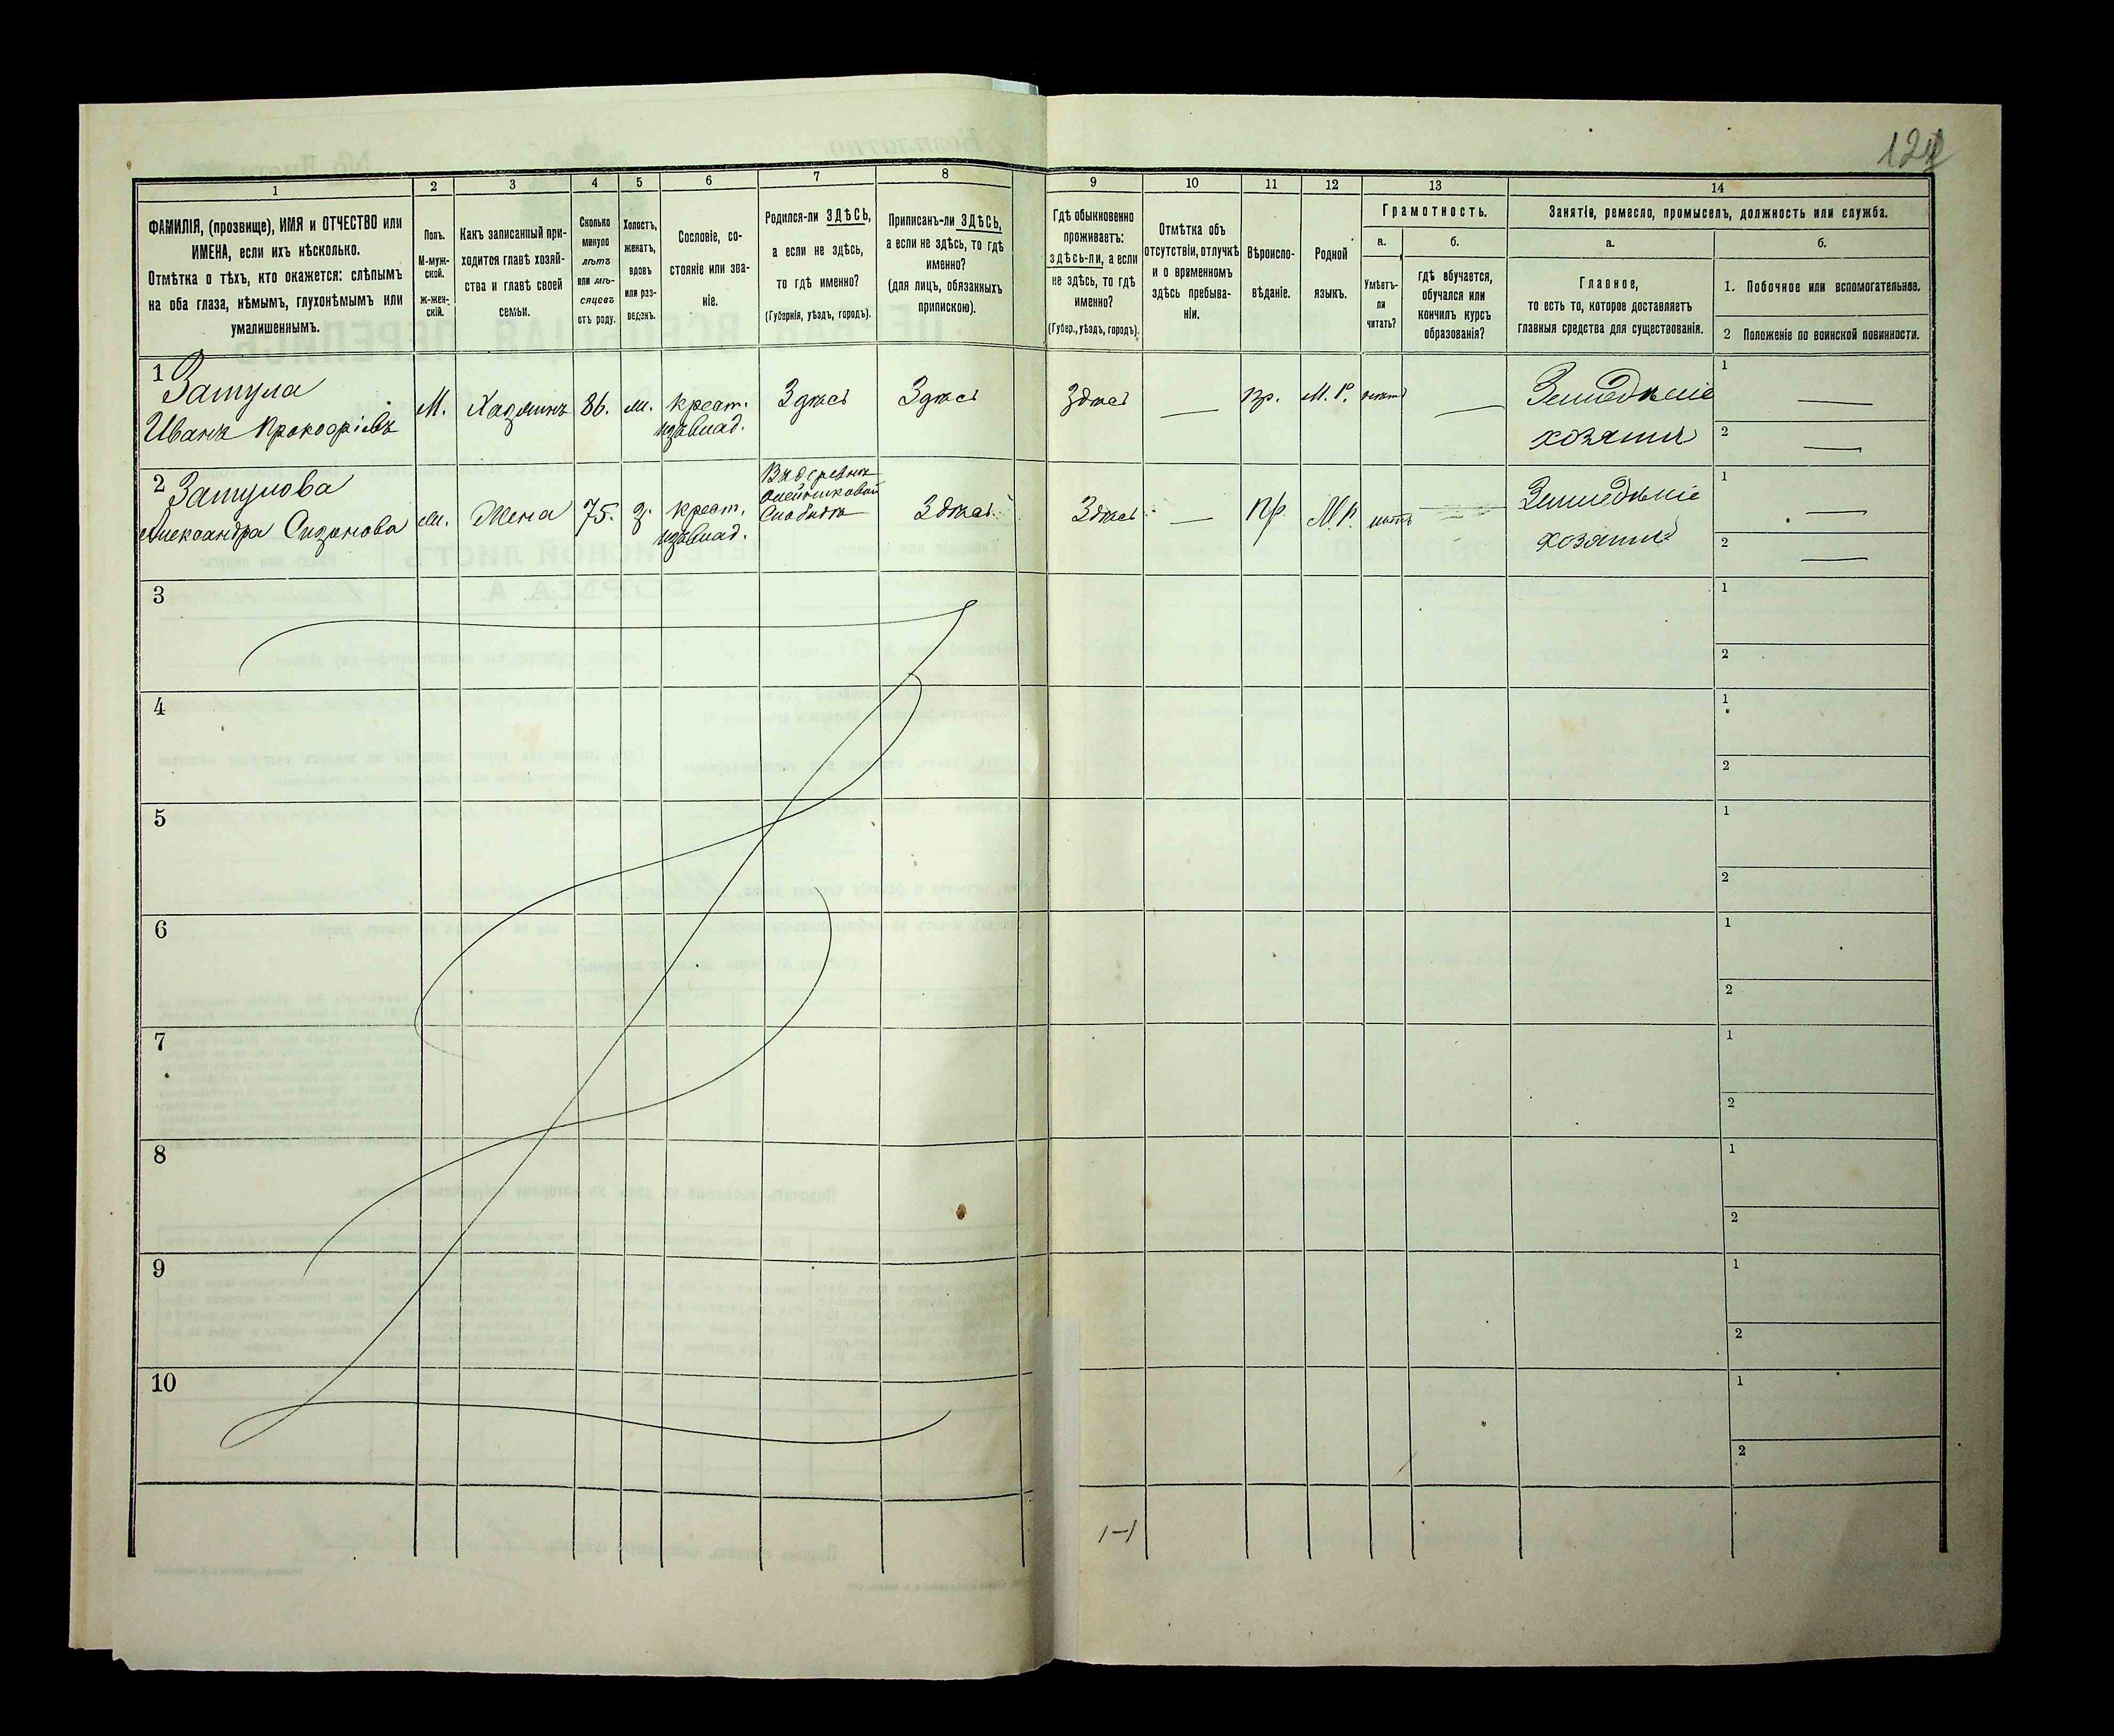 124
1
2
3
4
5
6
7
8
9
10
11
12
13
14
ФАМИЛІЯ, (прозвище), ИМЯ и ОТЧЕСТВО или
ИМЕНА, если ихъ нѣсколько.
Отмѣтка о тѣхъ, кто окажется: слѣпымъ
на оба глаза, нѣмымъ, глухонѣмымъ или
умалишеннымъ.
Полъ.
М-муж-
ской.
ж-жен-
скій.
Какъ записанный при-
ходится главѣ хозяй-
ства и главѣ своей
семьи.
Сколько
минуло
лѣтъ
или мѣ-
сяцевъ
отъ роду.
Холостъ,
женатъ,
вдовъ
или раз-
веденъ.
Сословіе, со-
стояніе или зва-
ніе.
Родился-ли ЗДѢСЬ,
а если не здѣсь,
то гдѣ именно?
(Губернія, уѣздъ, городъ).
Приписанъ-ли ЗДѢСЬ,
а если не здѣсь, то гдѣ
именно?
(для лицъ, обязанныхъ
припискою).
Гдѣ обыкновенно
проживаетъ:
здѣсь-ли, а если
не здѣсь, то гдѣ
именно?
(Губер., уѣздъ, городъ).
Отмѣтка объ
отсутствіи, отлучкѣ
и о временномъ
здѣсь пребыва-
ніи.
Вѣроиспо-
вѣданіе.
Родной
языкъ.
Грамотность.
а.
Умѣетъ-
ли
читать?
б.
гдѣ обучается,
обучался или
кончилъ курсъ
образованія?
Занятія, ремесло, промыселъ, должность или служба.
а.
Главное,
то есть то, которое доставляетъ
главныя средства для существованія.
б.
1. Побочное или вспомогательное.
2 Положеніе по воинской повинности.
1
Затула
Иванъ Прокофіевъ
М.
Хазяинъ
86.
ж.
крест.
изъ влад.
Здѣсь
Здѣсь
Здѣсь
—
пр.
М. Р.
нѣтъ
—
Земледѣліе
хозяинъ
1
—
2
—
2
Затулова
Александра Сидорова
ж.
Жена
75.
з.
крест.
изъ влад.
Въ деревнѣ
Олейниковой
Слободкѣ
Здѣсь
Здѣсь
—
пр.
М. Р.
нѣтъ
—
Земледѣліе
1
—
2
—
3
1
2
4
1
2
5
1
2
6
1
2
7
1
2
8
1
2
9
1
2
10
1
2
1-1